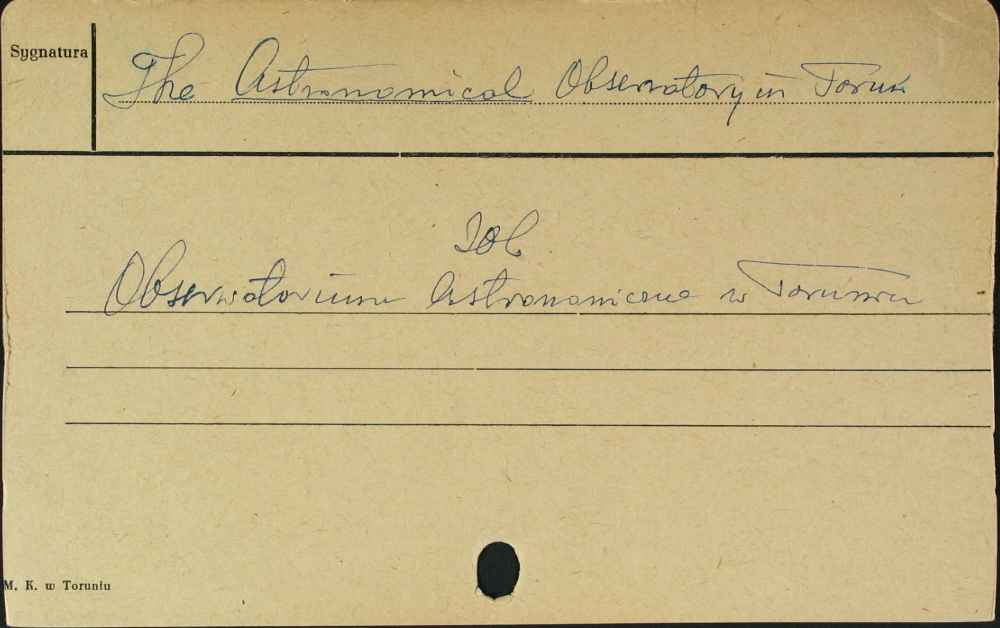 Sygnatura
The Astronomical Observatory in Toruń
zob.
Obserwatorium Astronomiczne w Toruniu
M. K. w Toruniu